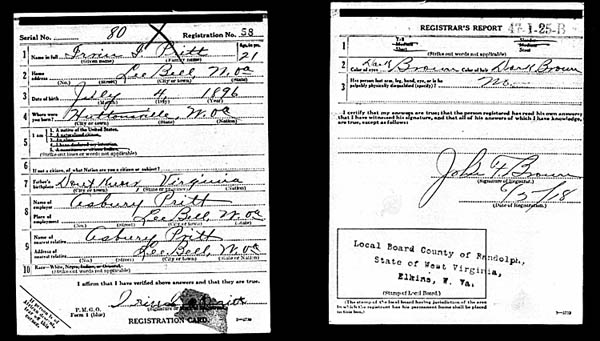 Serial No. 80 Registration No. 58
1 Name in full Irvin I. Pritt Age, in yrs. 21
(Given name) (Family name)
2 Home address Lee Bell, W. Va
(No.) (Street) (City or town) (State)
3 Date of birth July 4 1896
(Month) (Day) (Year)
4 Where were you born? Huttonsville, W. Va
(City or town) (State) (Nation)
5 I am 1. A native of the United States.
(Strike out lines or words not applicable)
6 If not a citizen, of what Nation are you a citizen or subject?
7 Father's birthplace Don't Know Virginia
(City or town) (State or province) (Nation)
8 Name of employer Asbury Pritt
Place of employment Lee Bell, W. Va
(No.) (Street) (City or town) (State)
9 Name of nearest relative Asbury Pritt
Address of nearest relative Lee Bell, W. Va
(No.) (Street) (City or town) (State or Nation)
10 Race—White
(Strike out words not applicable)
I affirm that I have verified above answers and that they are true.
P. M. G. O.
Form 1 (blue)
(Signature or
REGISTRATION CARD.
REGISTRAR'S REPORT 47-1-25-B
1 Tall Slender
Medium
Short Stout
(Strike out words not applicable)
2 Color of eyes Dark Brown Color of hair Dark Brown
3 Has person lost arm, leg, hand, eye, or is he palpably physically disqualified (specify)?
I certify that my answers are true; that the person registered has read his own answers; that I have witnessed his signature, and that all of his answers of which I have knowledge, are true, except as follows:
John F Brown
(Signature of Registrar)
6/5/18
(Date of Registration)
Local Board County of Randolph,
State of West Virginia,
Elkins, W. Va.
(Stamp of Local Board)
(The stamp of the local board having jurisdiction of the area in which the registrant has his permanent home shall be placed in this box.)